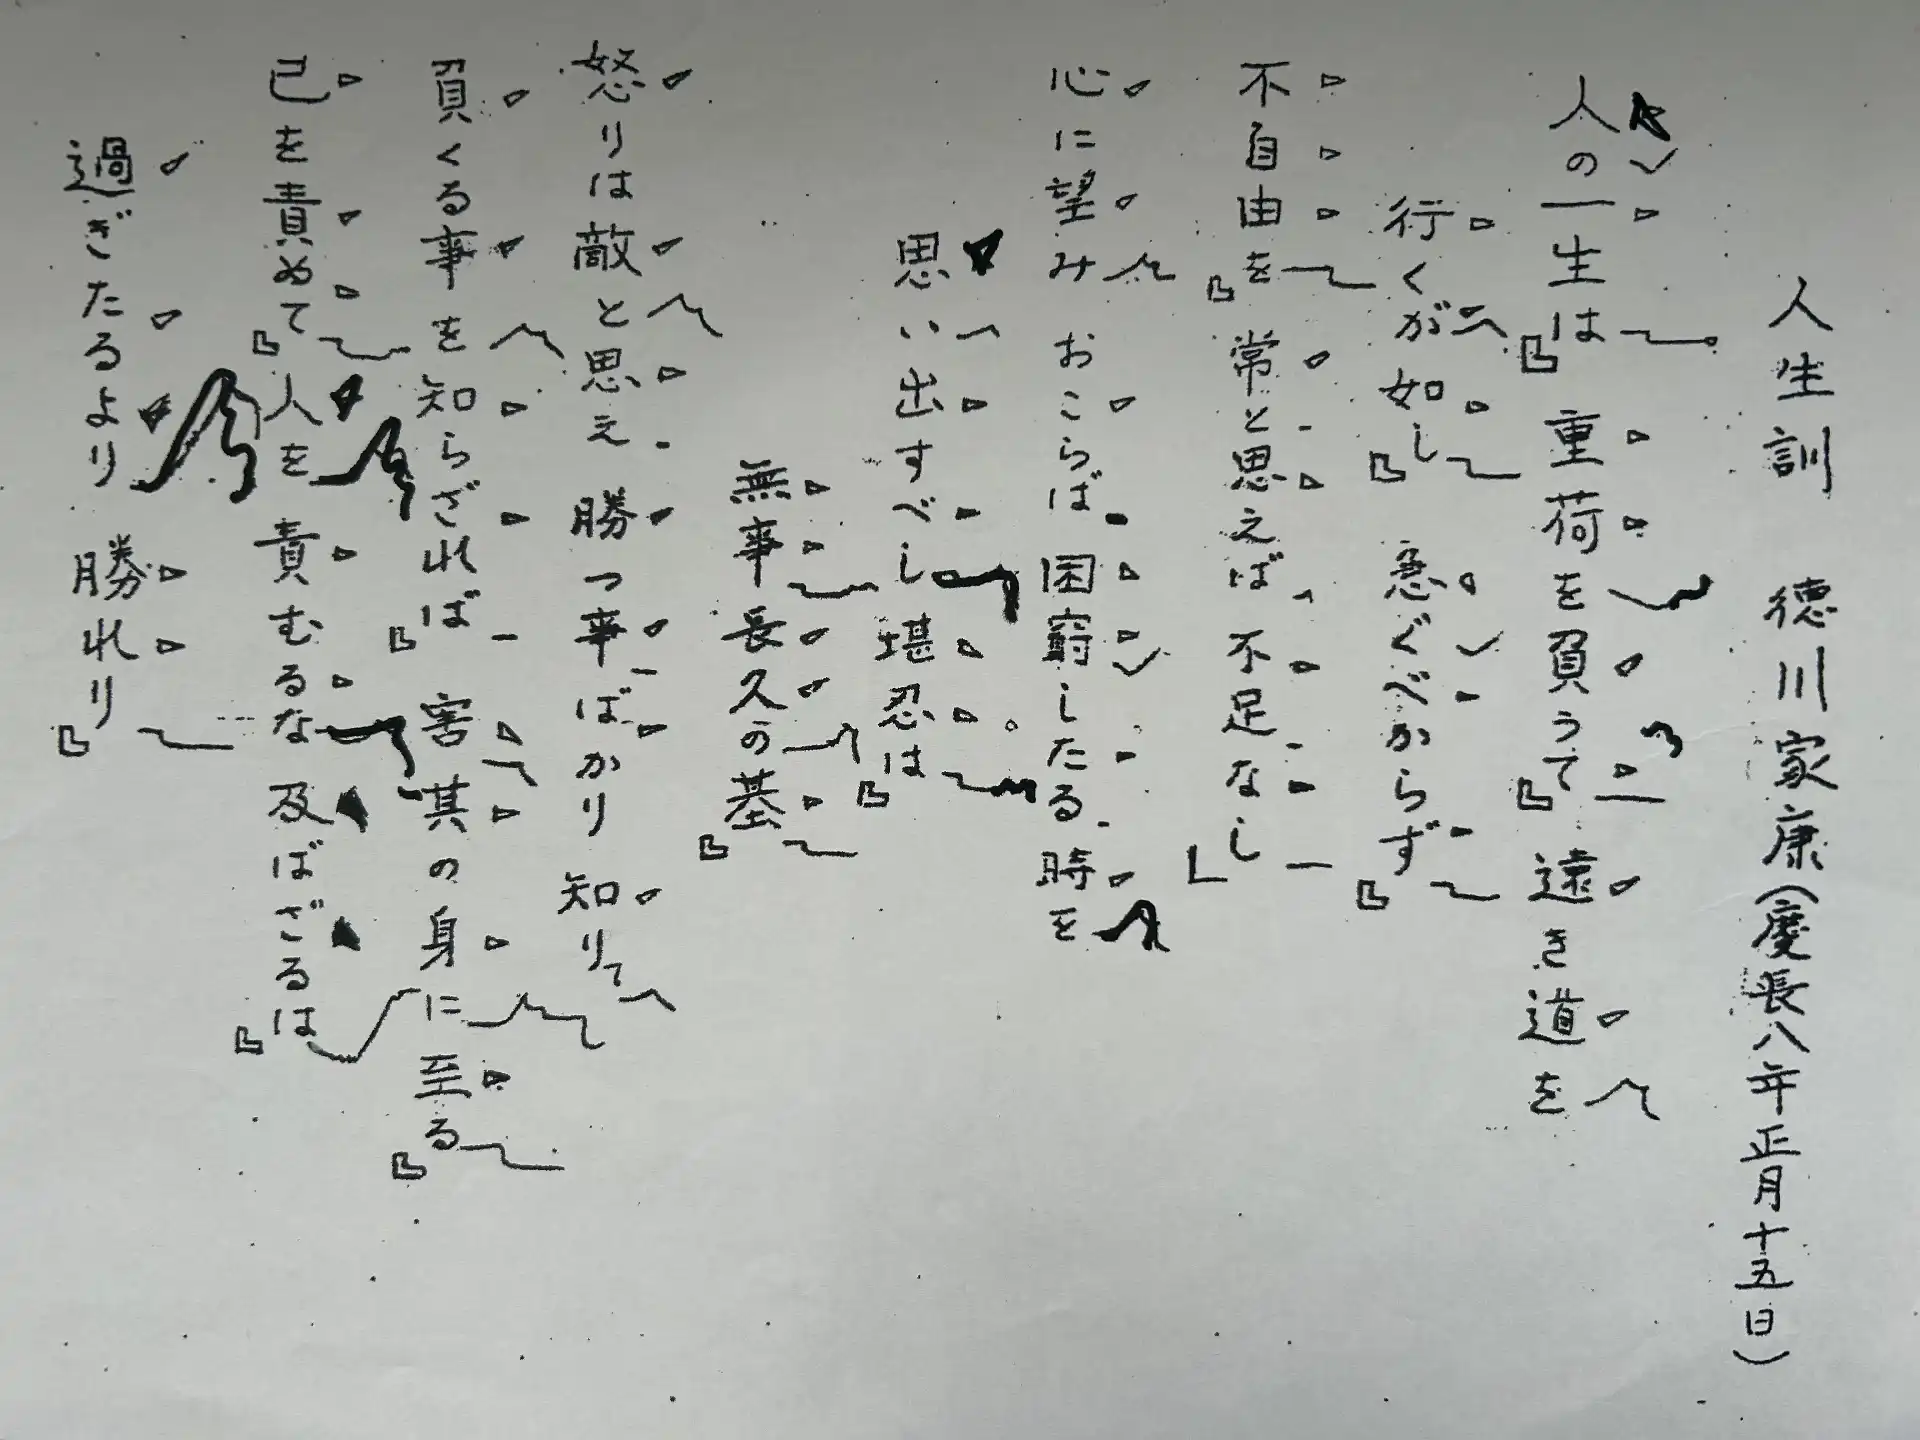 人生訓 徳川家康(慶長八年正月十五日)
人の一生は 重荷を負うて 遠き道を
行くが如し 急ぐべからず
不自由を 常と思えば 不足なし
心に望み おこらば 困窮したる 時を
思い出すべし 堪忍は
無事長久の基
怒りは敵と思え 勝つ事ばかり 知りて
負くる事を知らざれば 害其の身に至る
己を責めて 人を責むるな 及ばざるは
過ぎたるより 勝れり